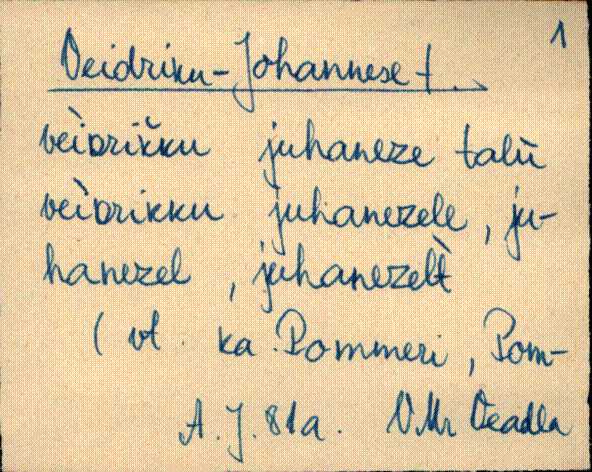 1
Veidriku-Johannese t.
vèiᴅrikku juhaneze talù
vèiᴅrikku juhanezele, ju-
hanezel, juhanezelt̀
(vt. ka Pommeri, Pom-
A. J. 81a. VMr Veadla